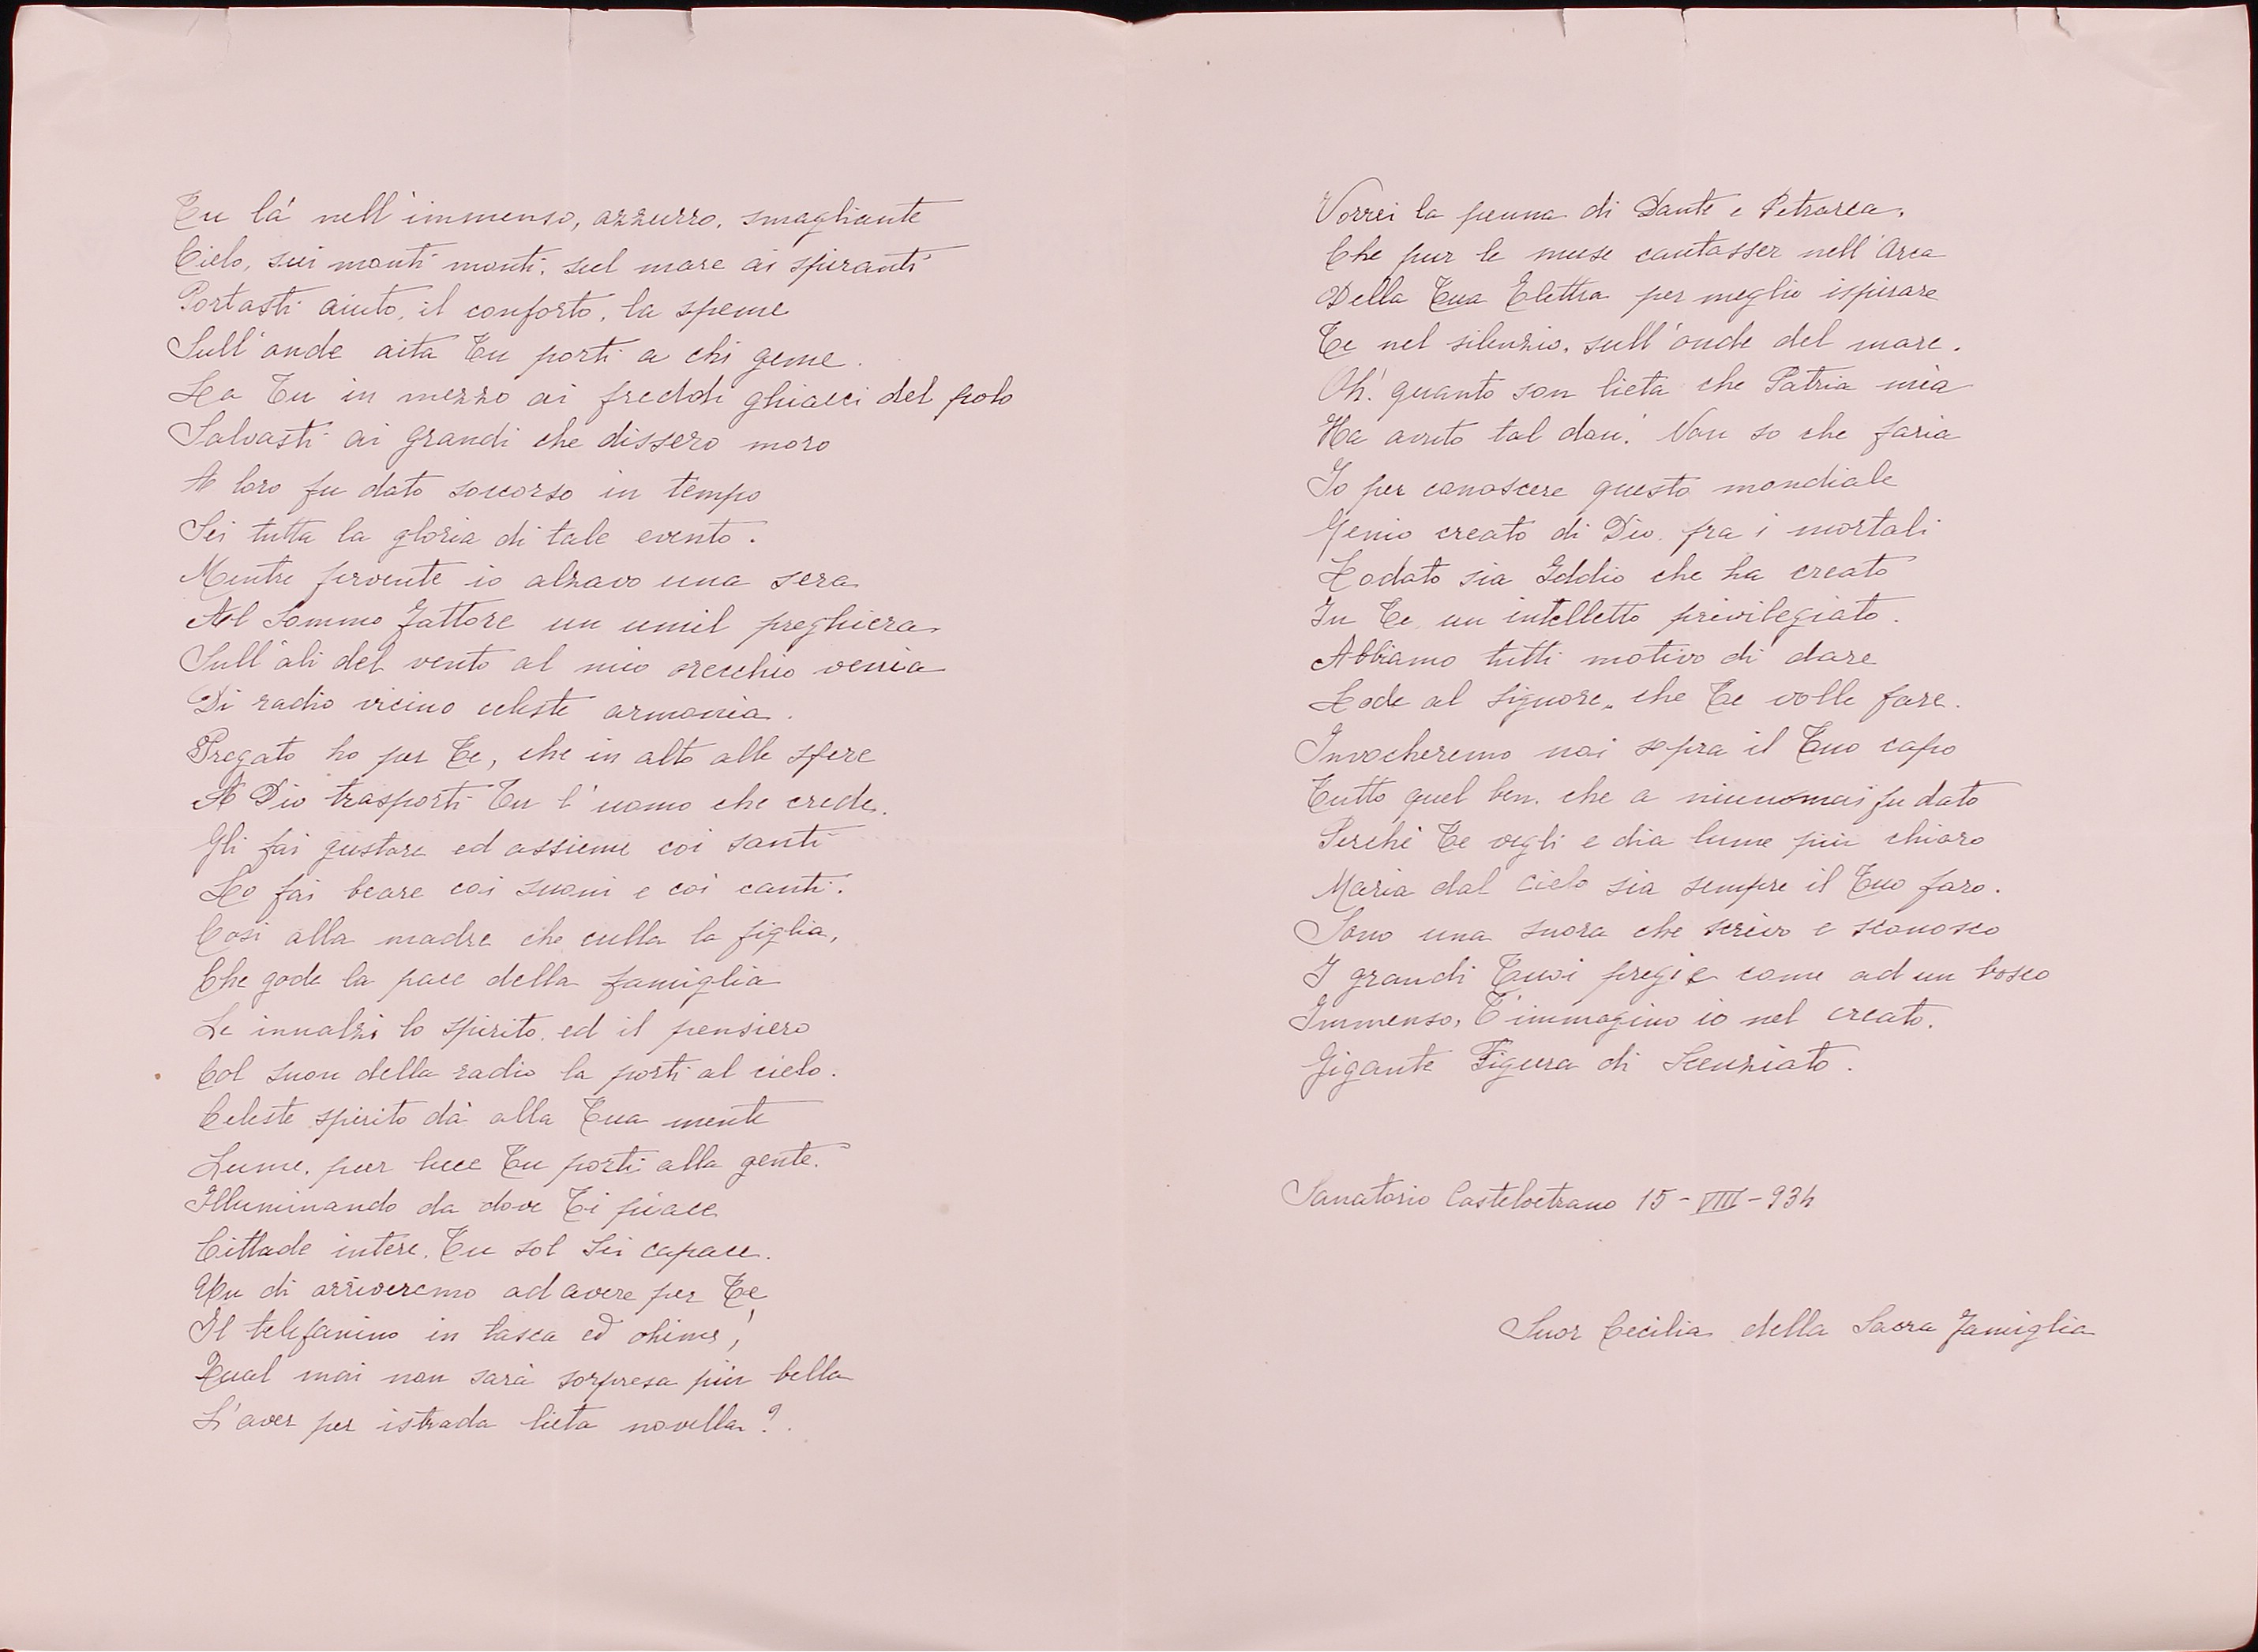 Tu la' nell'immenso, azzurro, smagliante
Cielo, sui monti monti, sul mare ai spiranti
Portasti aiuto, il conforto, la speme
Sull'onde aita Tu porti a chi geme.
La Tu in mezzo ai freddi ghiacci del polo
Salvasti ai grandi che dissero moro
A loro fu dato soccorso in tempo
Sei tutta la gloria di tale evento.
Mentre fervente io alzavo una sera
Al Sommo Fattore un umil preghiera
Sull'ali del vento al mio orecchio venia
Di radio vicino celeste armonia.
Pregato ho per Te, che in alto alle sfere
A Dio trasporti Tu l'uomo che crede.
Gli fai gustare ed assieme coi santi
Lo fai beare coi suoni e coi canti.
Così alla madre che culla la figlia,
Che gode la pace della famiglia
Le innalzi lo spirito, ed il pensiero
Col suon della radio la porti al cielo.
Celeste spirito dà alla Tua mente
Lume, pur luce Tu porti alla gente.
Illuminando da dove Ti piace
Cittade intere, Tu sol Sei capace.
Un di arriveremo ad avere per Te
Il telefonino in tasca ed ohime,!
Qual mai non sarà sorpresa più bella
L'aver per istrada lieta novella?.
Vorrei la penna di Dante e Petrarca,
Che pur le muse cantasser nell'Arca
Della Tua Elettra per meglio ispirare
Te nel silenzio, sull'onde del mare.
Oh! quanto son lieta che Patria mia
Ha avuto tal don! Non so che faria
Io per conoscere questo mondiale
Genio creato di Dio fra i mortali
Lodato sia Iddio che ha creato
In Te un intelletto privilegiato.
Abbiamo tutti motivo di dare
Lode al Signore, che Te volle fare.
Invocheremo noi sopra il Tuo capo
Tutto quel ben, che a niuno mai fu dato
Perchè Te vegli e dia lume più chiaro
Maria dal Cielo sia sempre il Tuo faro.
Sono una suora che scrivo e sconosco
I grandi Tuoi pregi e come ad un bosco
Immenso, T'immagino io nel creato.
Gigante Figura di Scenziato.
Sanatorio Castelvetrano 15-VIII-934
Suor Cecilia della Sacra Famiglia